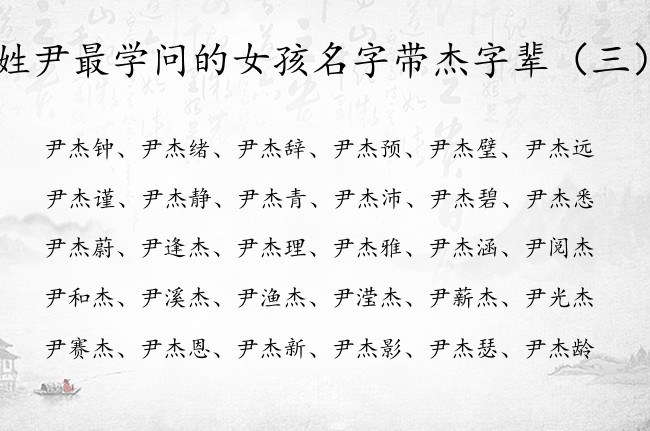 姓尹最学问的女孩名字带杰字辈（三）
尹杰钟、尹杰绪、尹杰辞、尹杰预、尹杰璧、尹杰远
尹杰谨、尹杰静、尹杰青、尹杰沛、尹杰碧、尹杰悉
尹杰蔚、尹逢杰、尹杰理、尹杰雅、尹杰涵、尹阅杰
尹和杰、尹溪杰、尹渔杰、尹滢杰、尹薪杰、尹光杰
尹赛杰、尹杰恩、尹杰新、尹杰影、尹杰瑟、尹杰龄